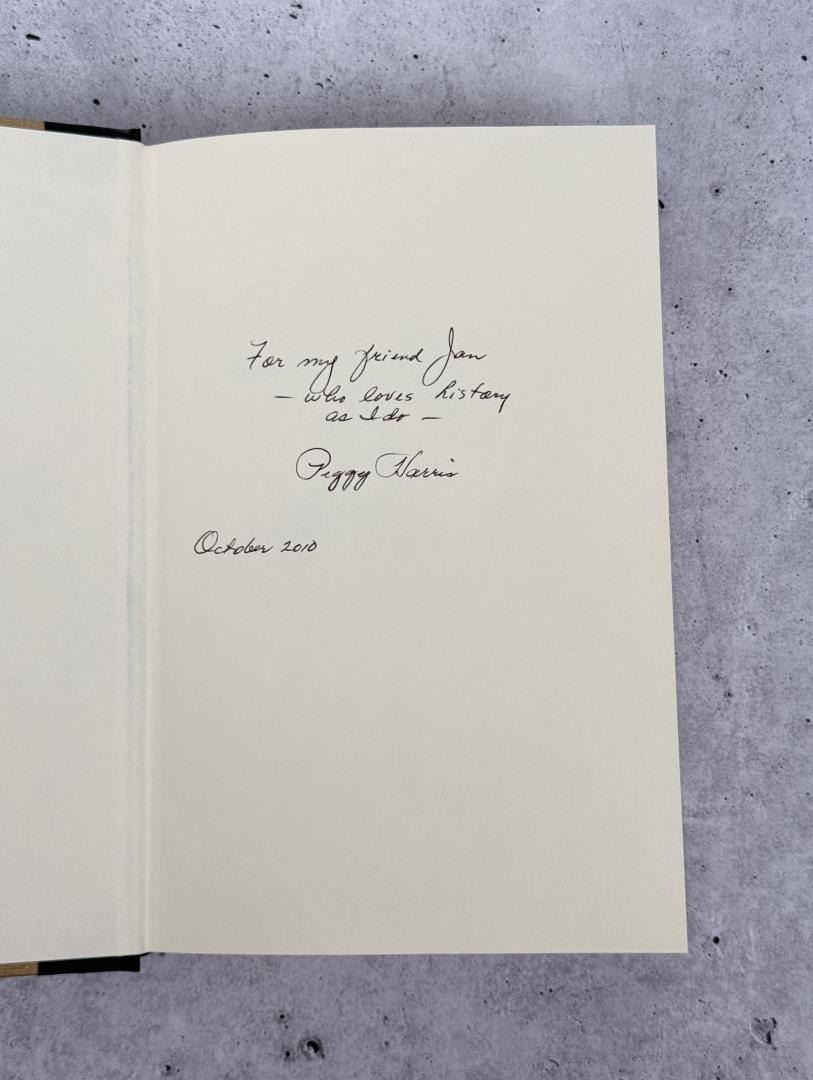 For my friend Jan
— who loves history
as I do —
Peggy Harris
October 2010